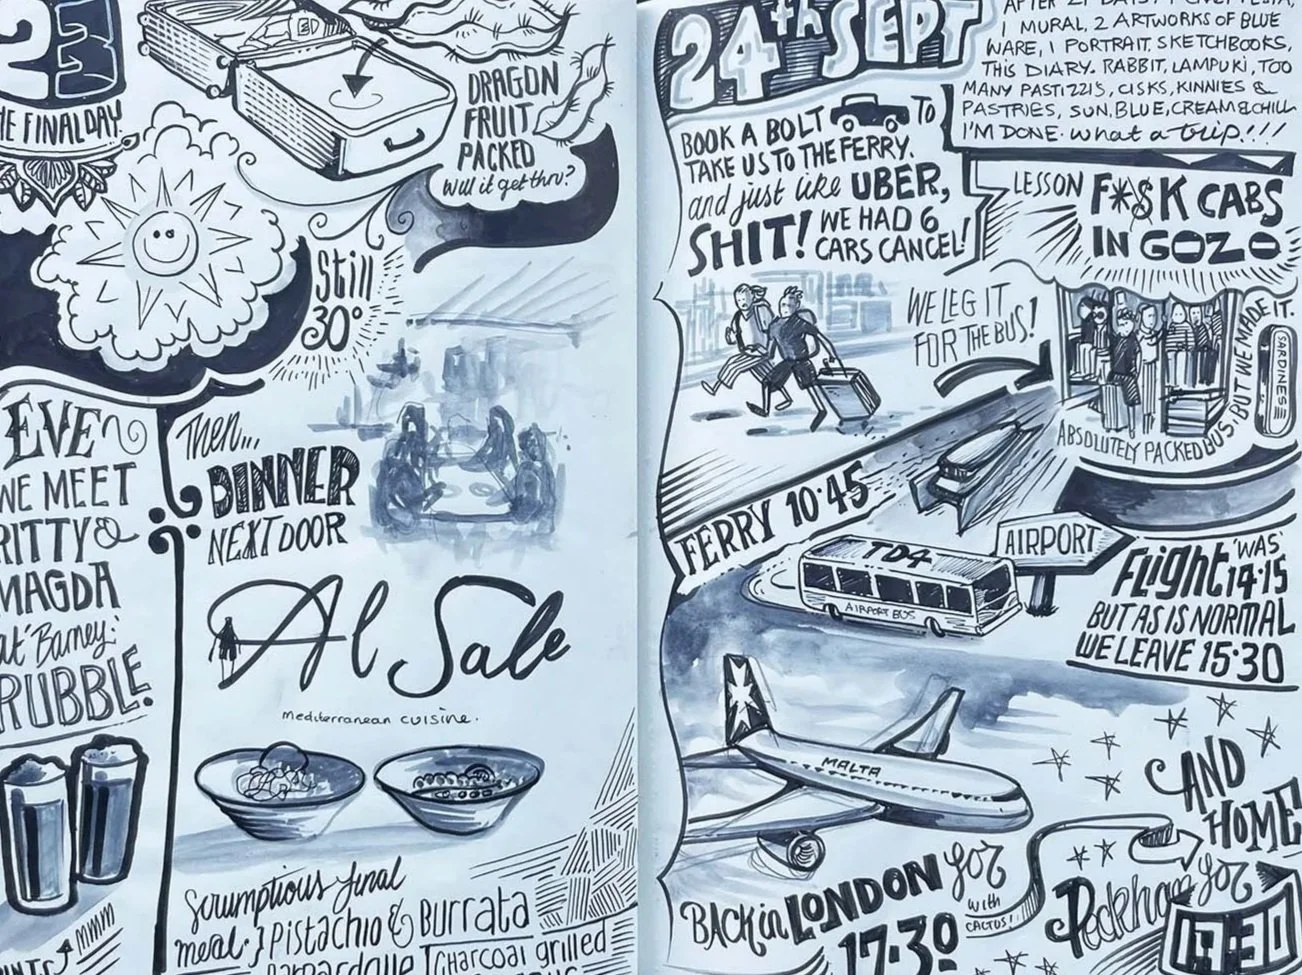 23
THE FINAL DAY.
DRAGON
FRUIT
PACKED
will it get thru?
Still
30°
EVE
WE MEET
RITTY &
MAGDA
at 'Barney:
RUBBLE.
MMM
Then...
DINNER
NEXT DOOR
Al Sale
mediterranean cuisine.
Scrumptious final
meal:} Pistachio & Burrata
Charcoal grilled
24th SEPT
I MURAL, 2 ARTWORKS OF BLUE
WARE, I PORTRAIT, SKETCHBOOKS,
THIS DIARY. RABBIT, LAMPUKI, TOO
MANY PASTIZZIS, CISKS, KINNIES &
PASTRIES, SUN, BLUE, CREAM & CHILL
I'M DONE. what a trip!!!
BOOK A BOLT TO
TAKE US TO THE FERRY.
and just like UBER,
SHIT! WE HAD 6
CARS CANCEL!
LESSON F*$K CABS
IN GOZO
WE LEG IT
FOR THE BUS!
ABSOLUTELY PACKED BUS, BUT WE MADE IT.
SARDINES
FERRY 10.45
AIRPORT
TD4
AIRPORT BUS
Flight 'WAS'
14.15
BUT AS IS NORMAL
WE LEAVE 15.30
MALTA
AND
HOME
BACK in LONDON for
17.30
with
CACTUS!
Peckham for